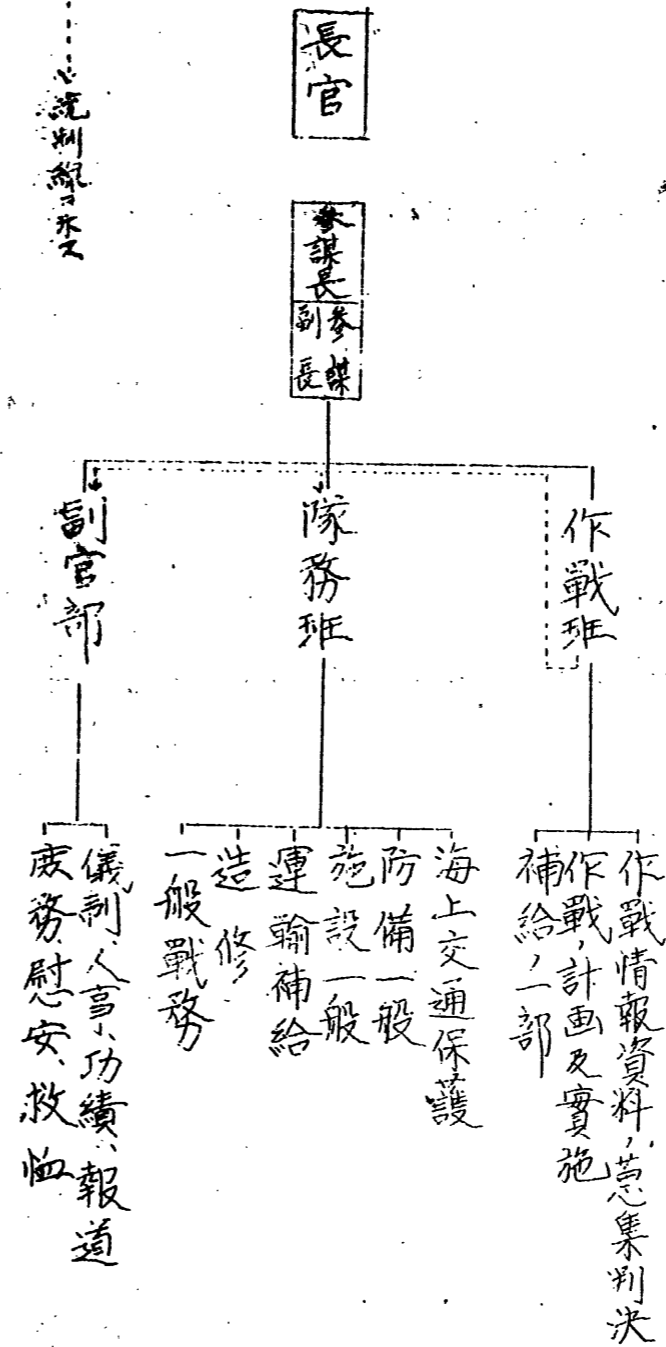 長官
參謀長
參謀副長
作戰班
作戰情報資料ノ蒐集判決
作戰ノ計画及實施
補給ノ一部
隊務班
海上交通保護
防備一般
施設一般
運輸補給
造修
一般戰務
副官部
儀制、人事、功績、報道
庶務、慰安、救恤
統制線ヲ示ス